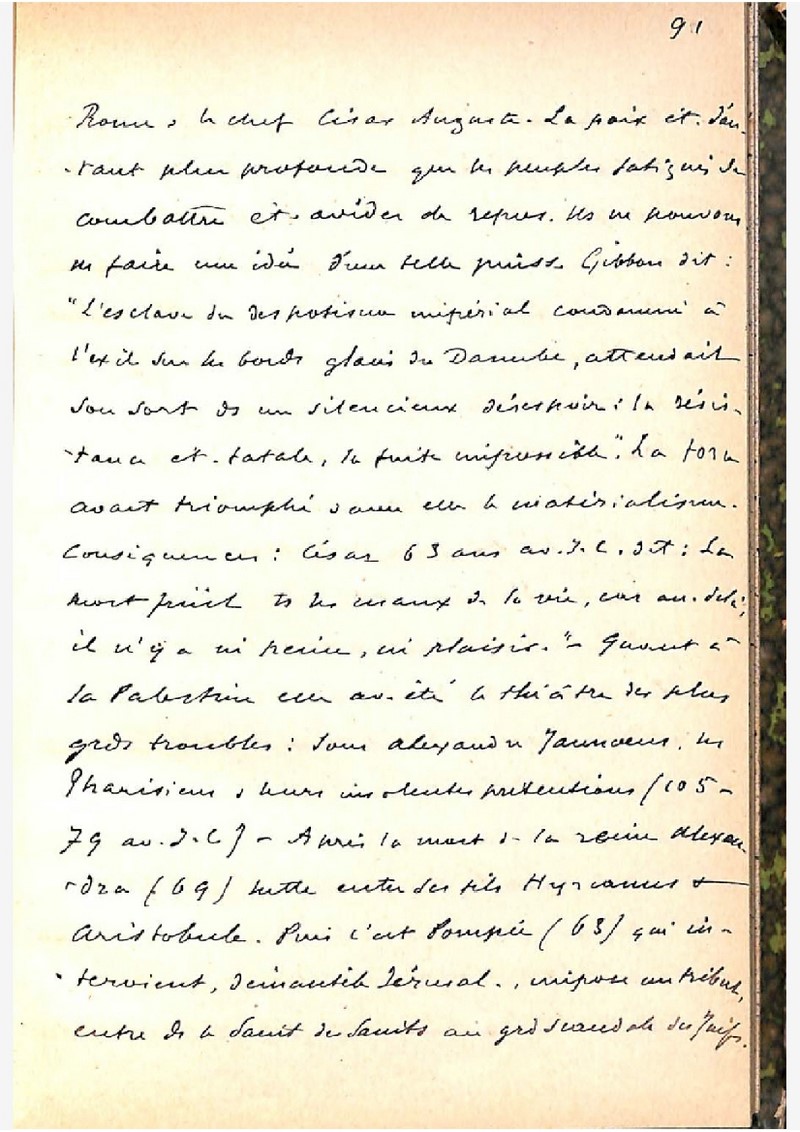 91
Rome & le chef César Auguste. La paix ét. d'au-
-tant plus profonde que les peuples fatigués de
combattre ét. avides de repos. Ns ne pouvons
ns faire une idée d'une telle puiss. Gibbon dit :
"L'esclave du despotisme impérial condamné à
l'exil sur les bords glacés du Danube, attendait
son sort ds un silencieux désespoir : la résis-
-tance ét. fatale, la fuite impossible". La force
avait triomphé & avec elle le matérialisme.
Conséquences : César 63 ans av. J.C. dit : La
mort finit ts les maux de la vie, car au-delà,
il n'y a ni peine, ni plaisir." - Quant à
la Palestine elle av. été le théâtre des plus
grds troubles : sous Alexandre Jannoeus, les
Pharisiens & leurs insolentes prétentions (105-
79 av. J.C) - Après la mort de la reine Alexan-
-dra (69) lutte entre ses fils Hyrcanus &
Aristobule. Puis c'est Pompée (63) qui in-
-tervient, démantèle Jérusal., impose un tribut,
entre ds le Saint des Saints au grd scandale des Juifs.